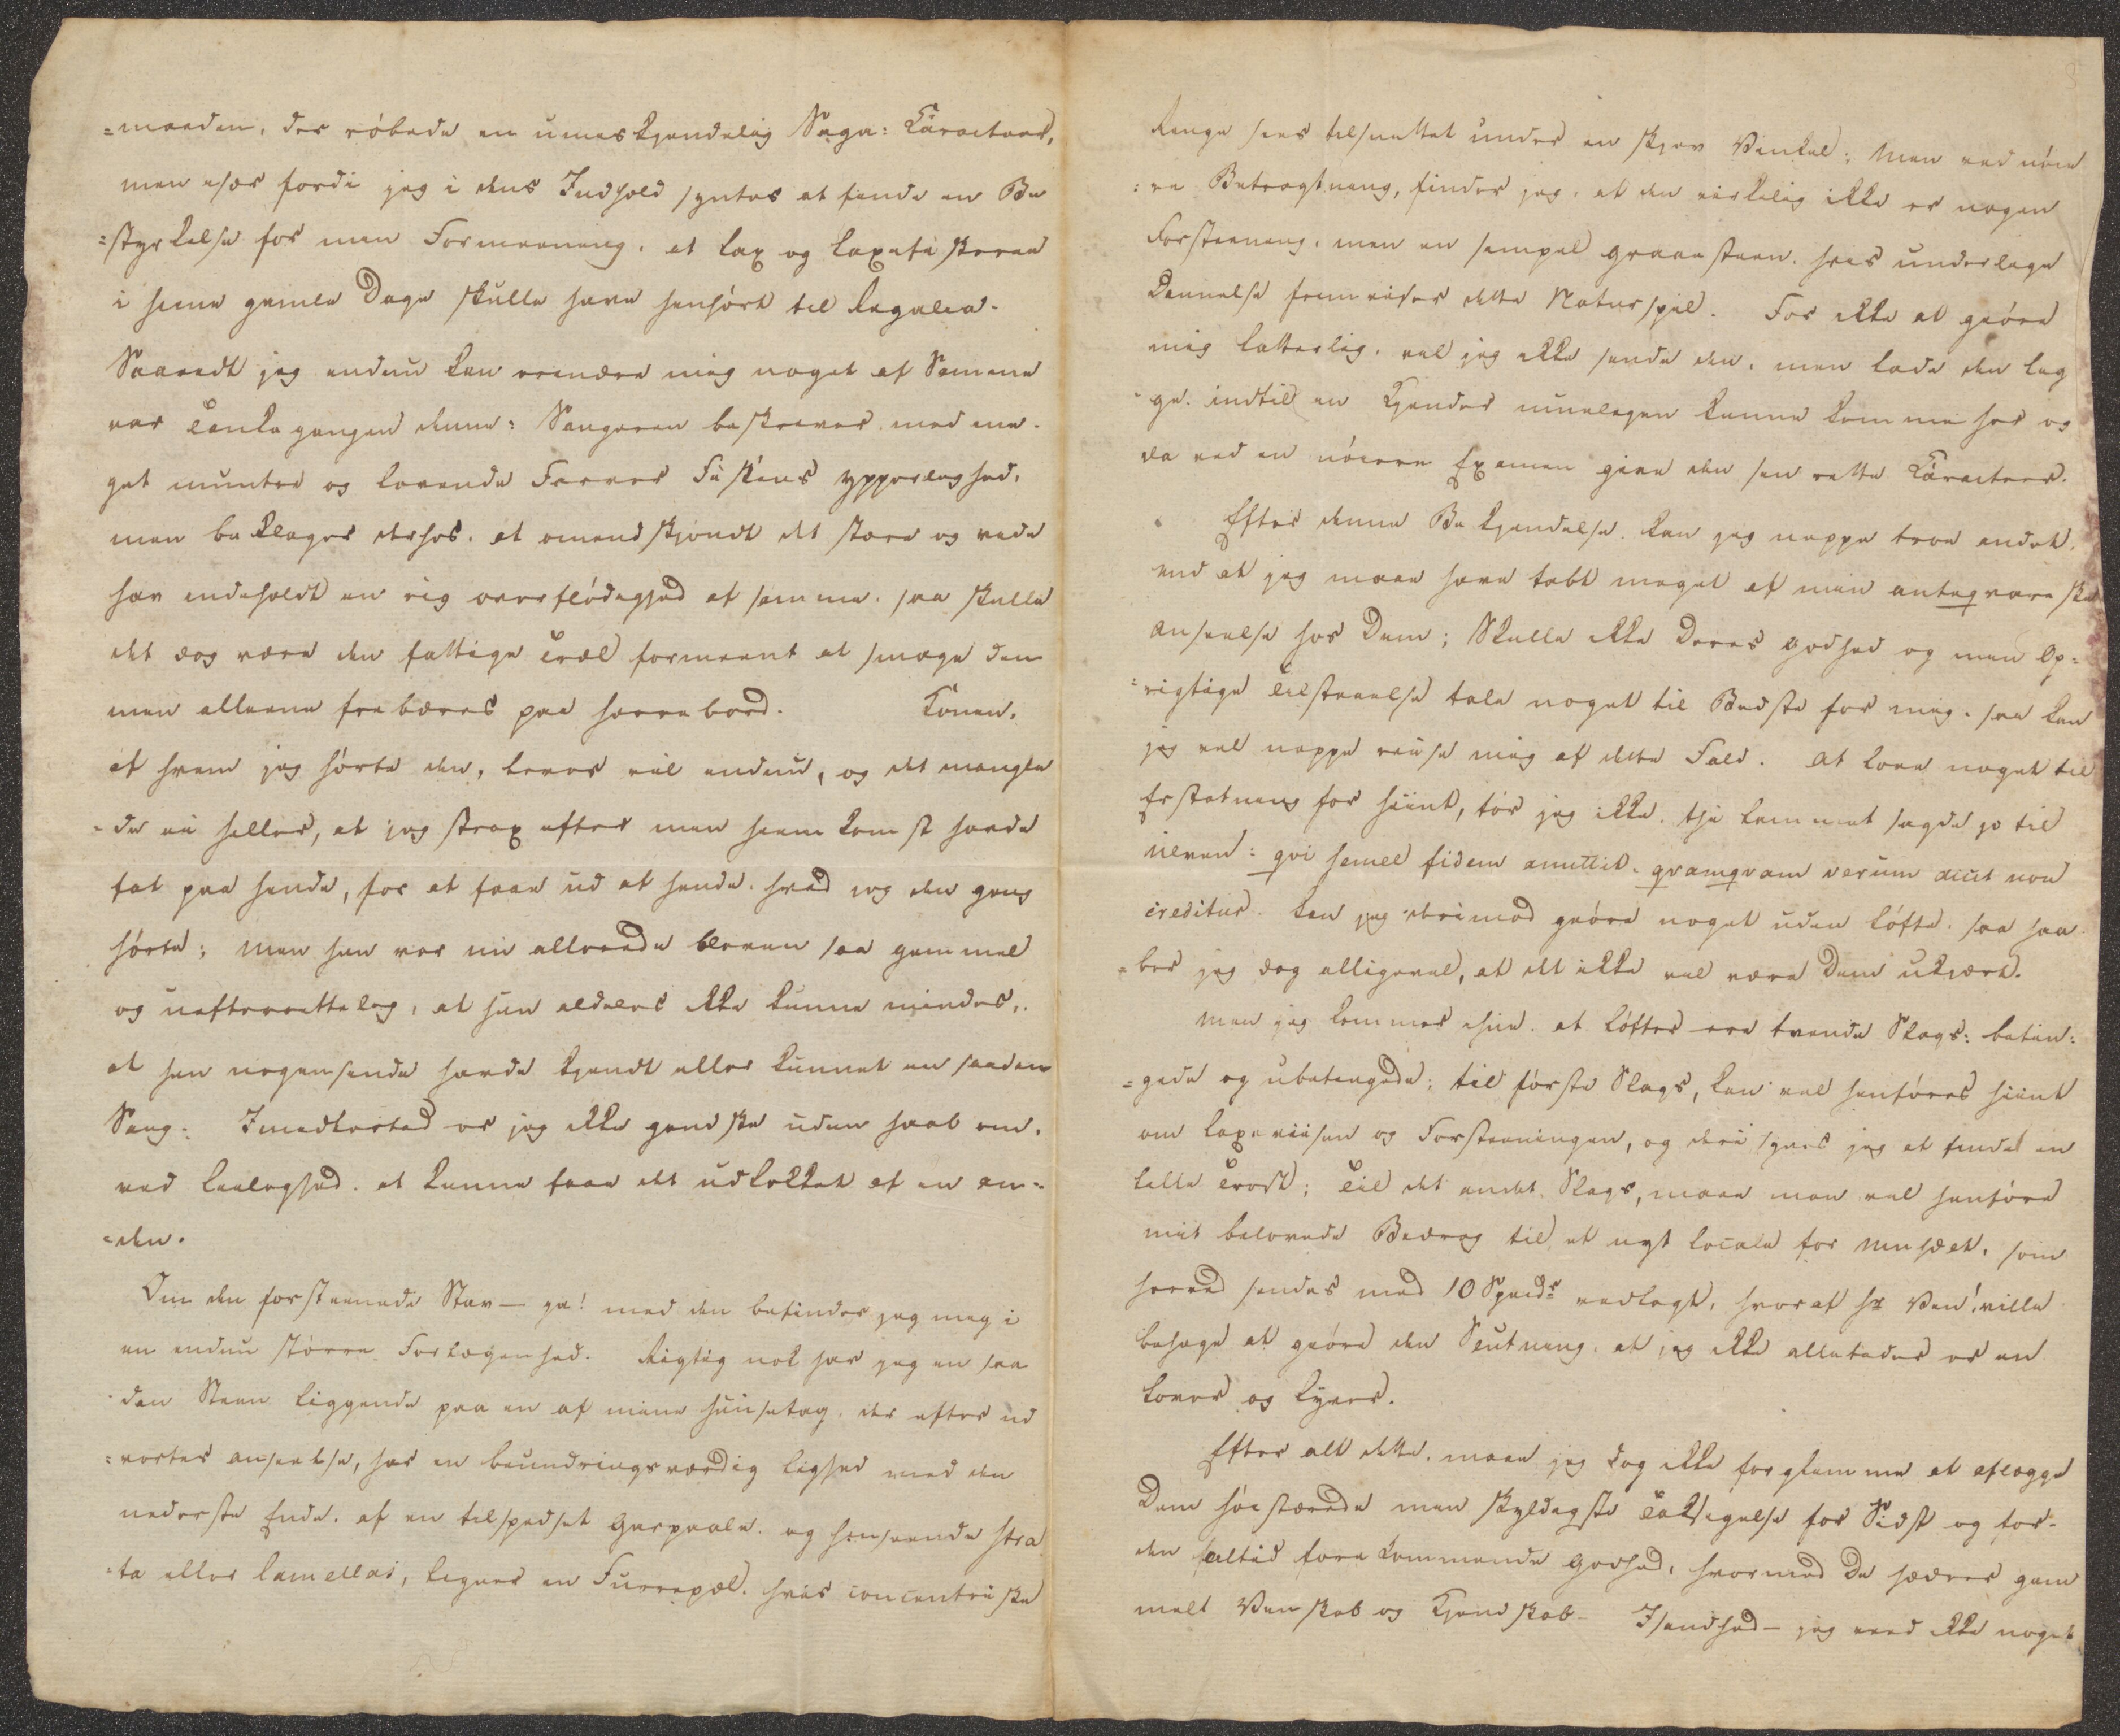 =maaden, der røbede en umiskjendelig Saga: Caracteer,
men især fordi jeg i dens Indhold syntes at finde en Be
=styrkelse for min Formeening, at Lax og Laxefiskerie
i hine gamle Dage skulle have henhørt til Regalia.
Saavidt jeg endnu kan erindre mig noget af Samme
var Tankegangen denne: Sangeren beskriver med me-
get muntre og levende Farver Fiskens ypperlighed,
men beklager derhos, at omendskjøndt det store og vide
hav indeholdt en rig overflødighed af samme, saa skulle
det dog være den fattige Træl formeent at smage den
men alleene frebæres paa herrebord. Konen,
af hvem jeg hørte den, lever vel endnu, og det mangle
=de ei heller, at jeg strax efter min hiemkomst havde
fat paa hende, for at faae ud at hende, hvad jeg den gang
hørte; Men hun var nu allerede bleven saa gammel
og uefterrettelig, at hun aldeles ikke kunne mindes,
at hun nogensinde havde kjendt eller kunnet en saadan
Sang. Imidlertid er jeg ikke gandske uden haab om,
ved Leilighed, at kunne faae det udlokket af en an=
=den.
Om den forsteenede Stav — ja! med den befinder jeg mig i
en endnu større Forlægenhed. Rigtig nok har jeg en saa
dan Steen liggende paa en af mine huusetag, der efter ud
=vortes anseelse, har en beundringsværdig lighed med den
nederste Ende, af en tilspidset Gierpæle, og henseende stra
=ta eller lamellai, ligner en Furrepæl, hvis concentriske
Ringe sees tilsnittet under en skjev Vinkel; Men ved nøie
=re Betragtning, finder jeg, at den virkelig ikke er nogen
Forsteening, men en simpel graaesteen, hvis underlige
Dannelse fremviser dette Naturspil. For ikke at gjøre
mig latterlig, vil jeg ikke sende den, men lade den lig
ge, indtil en Kjender muelegen kunne komme her og
da ved en nøiere Examen give den sin rette Caracteer.
Efter denne Bekjendelse, kan jeg neppe troe andet,
end at jeg maae have tabt meget af min antiqvariske
anseelse hos Dem; Skulle ikke Deres godhed og min Op=
=rigtige Tilstaaelse tale noget til Bedste for mig, saa kan
jeg vel neppe reise mig af dette Fald. At love noget til
Erstatning for hiint, tør jeg ikke, thi Lemmet sagde jo til
ileven: qvi semel fidem amittit, qvamqvam verum dicit non
creditur. Kan jeg derimod gjøre noget uden Løfte, saa haa
=ber jeg dog alligevel, at det ikke vil være Dem ukjært.
Men jeg kommer ihue, at Løfter ere tvende Slags: betin=
=gede og ubetingede; til første Slags, kan vel henføres hiint
om Laxeviisen og Forsteeningen, og deri synes jeg at finde en
lille Trøst; Til det andet Slags, maae man vel henføre
mit belovede Bidrag til et nyt locale for Musæet, som
herved sendes med 10 Speid:r vedlagt, hvoraf hr Ven! ville
behage at gjøre den Slutning, at jeg ikke alletider er en
Lover og Lyver.
Efter alt dette, maae jeg dog ikke forglemme at aflægge
Dem høistærede min skyldigste Taksigelse for Sidst og for
den altid forekommende Godhed, hvormed De hædrer gam
melt Venskab og Kjendskab — Isandhed — jeg veed ikke noget